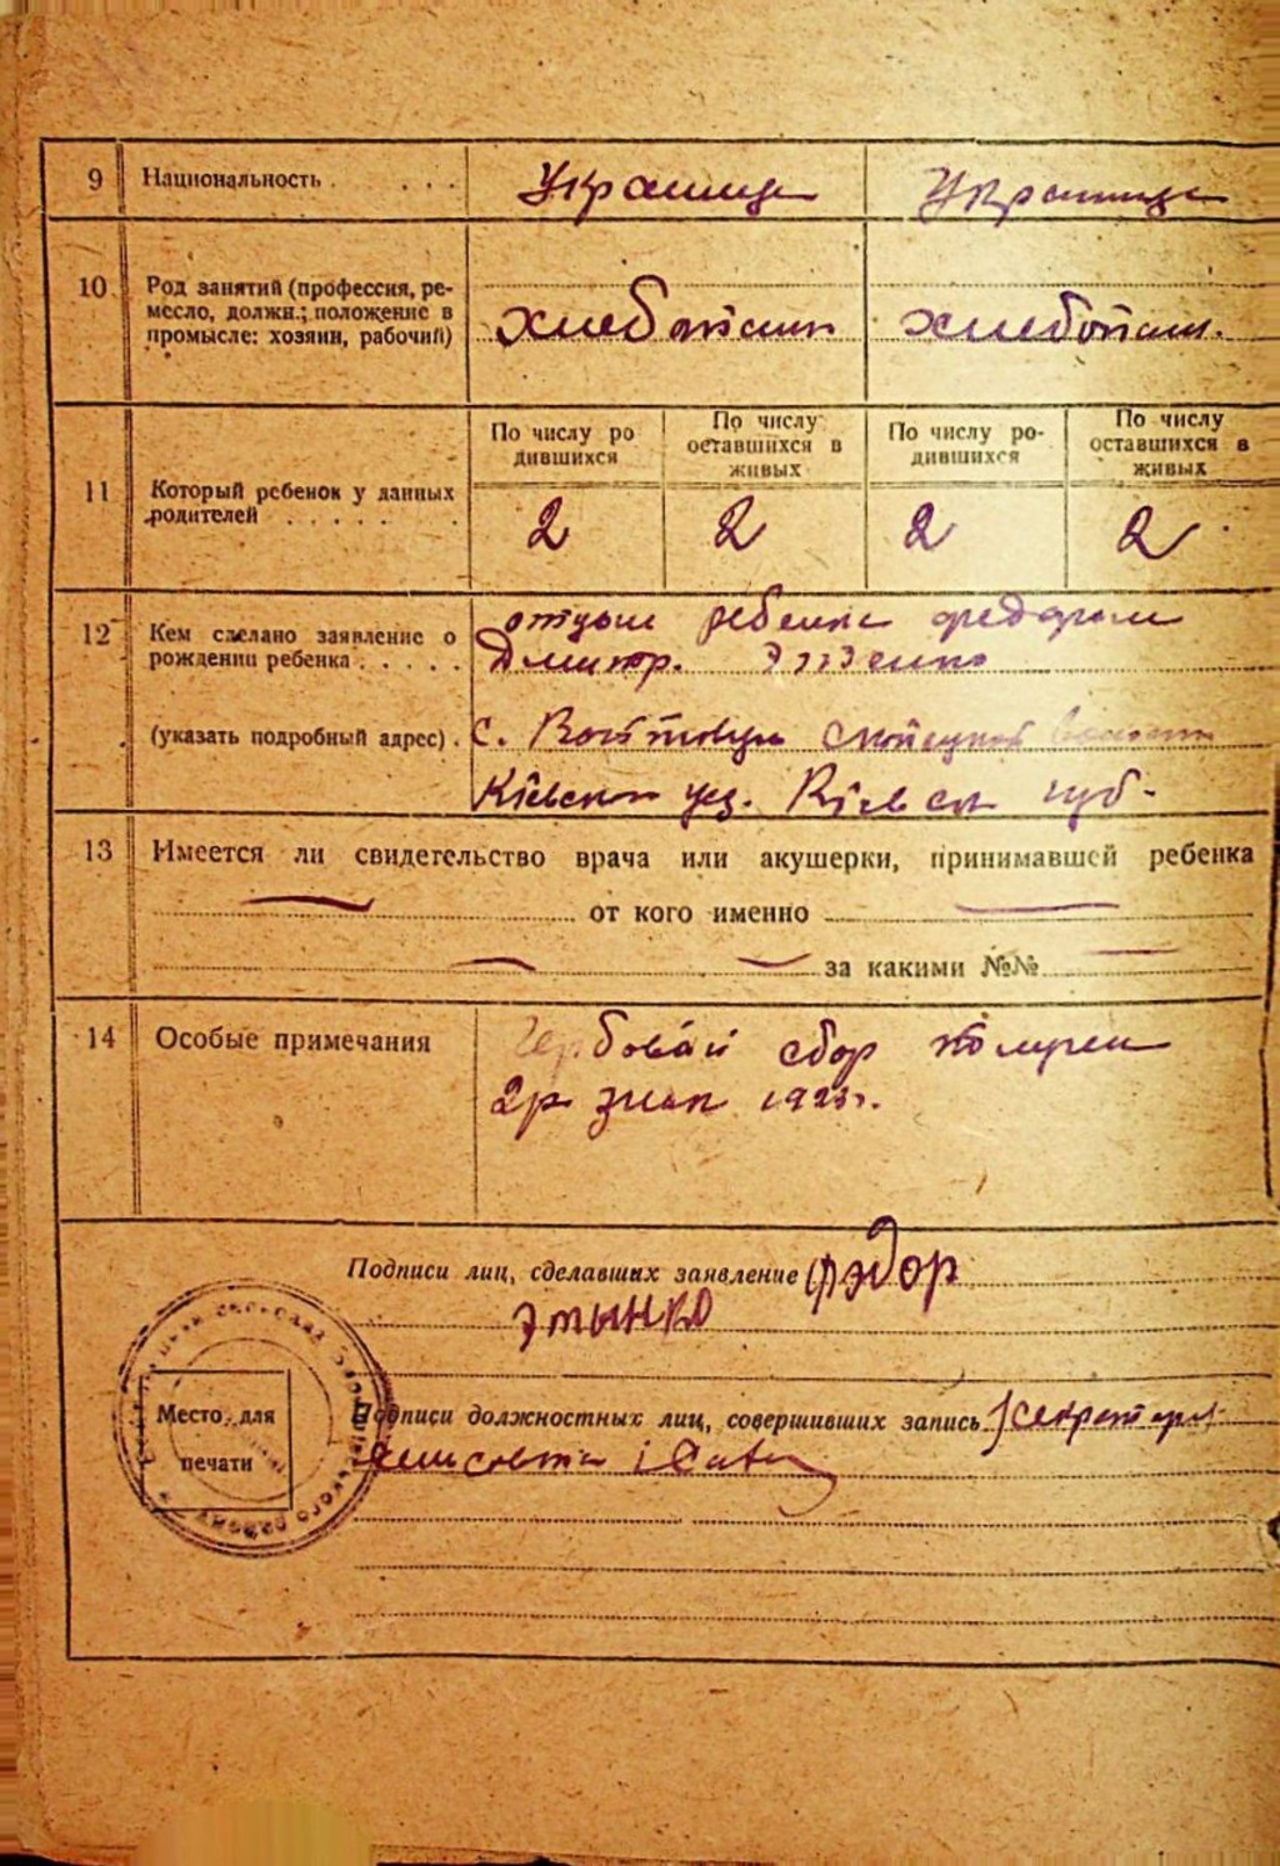 9 Национальность . . . . Украинце Украинце
10 Род занятий (профессия, ре-
месло, должн.; положение в
промысле: хозяин, рабочий)
хлебопашн хлебопаш.
11 Который ребенок у данных
родителей . . . . . .
По числу ро
дившихся
По числу
оставшихся в
живых
По числу ро-
дившихся
По числу
оставшихся в
живых
2 2 2 2
12 Кем сделано заявление о
рождении ребенка . . . . .
отцом ребенка
Дмитр.
(указать подробный адрес) . с.
Кіевск уез. Кіевск губ.
13 Имеется ли свидетельство врача или акушерки, принимавшей ребенка
от кого именно
за какими №№
14 Особые примечания
Гербовый сбор получен
2р знак 1923г.
Подписи лиц, сделавших заявление Фэдор
Место для
печати
Подписи должностных лиц, совершивших запись секретарь